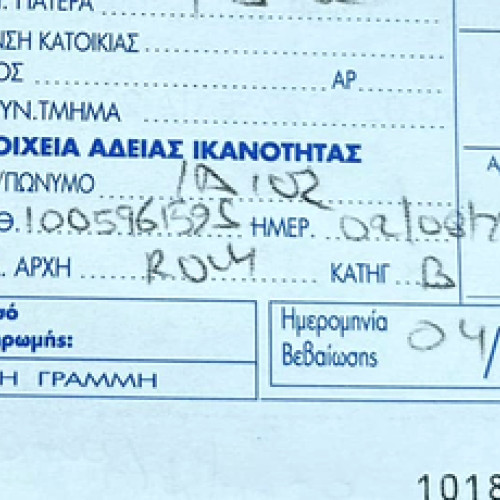 . ΠΑΤΕΡΑ
ΝΣΗ ΚΑΤΟΙΚΙΑΣ
ΟΣ ΑΡ.
ΥΝ.ΤΜΗΜΑ
ΟΙΧΕΙΑ ΑΔΕΙΑΣ ΙΚΑΝΟΤΗΤΑΣ
/ΠΩΝΥΜΟ ΙΔΙΟΣ
Θ. ΗΜΕΡ. 02/08/
. ΑΡΧΗ ΚΑΤΗΓ. B
σό
ρωμής:
Η ΓΡΑΜΜΗ
Ημερομηνία
Βεβαίωσης 04/
1018